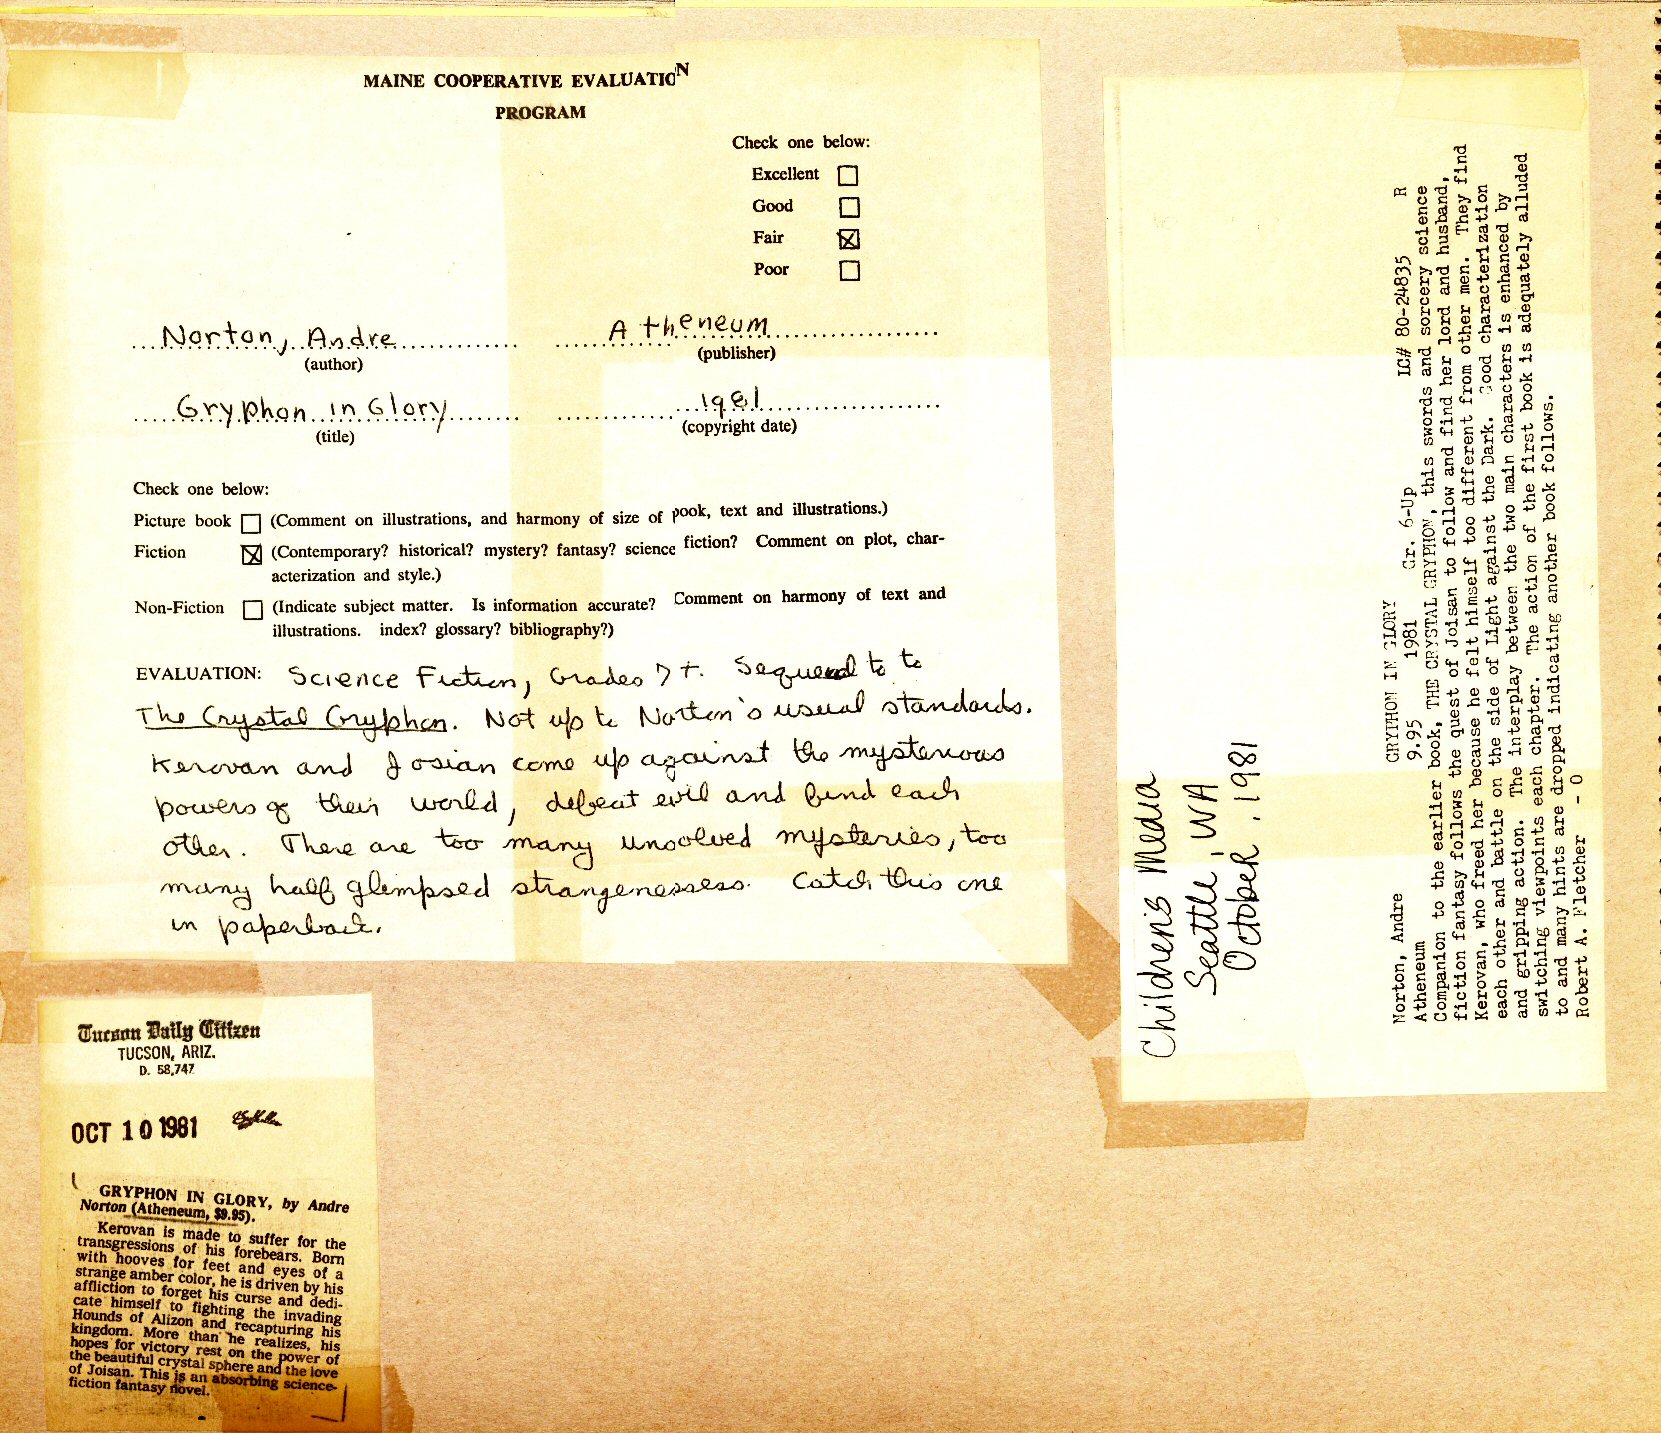 MAINE COOPERATIVE EVALUATION
PROGRAM
Check one below:
Excellent
Good
Fair
Poor
Norton, Andre
(author)
Atheneum
(publisher)
Gryphon in Glory
(title)
1981
(copyright date)
Check one below:
Picture book (Comment on illustrations, and harmony of size of book, text and illustrations.)
Fiction (Contemporary? historical? mystery? fantasy? science fiction? Comment on plot, char-
acterization and style.)
Non-Fiction (Indicate subject matter. Is information accurate? Comment on harmony of text and
illustrations. index? glossary? bibliography?)
EVALUATION: Science Fiction, Grades 7+. Sequel to to
The Crystal Gryphon. Not up to Norton's usual standards.
Kerovan and Josian come up against the mysterious
powers of their world, defeat evil and find each
other. There are too many unsolved mysteries, too
many half glimpsed strangenessess. Catch this one
in paperback.
Tucson Daily Citizen
TUCSON, ARIZ.
D. 58,747
OCT 10 1981
GRYPHON IN GLORY, by Andre
Norton (Atheneum, $9.95).
Kerovan is made to suffer for the
transgressions of his forebears. Born
with hooves for feet and eyes of a
strange amber color, he is driven by his
affliction to forget his curse and dedi-
cate himself to fighting the invading
Hounds of Alizon and recapturing his
kingdom. More than he realizes, his
hopes for victory rest on the power of
the beautiful crystal sphere and the love
of Joisan. This is an absorbing science-
fiction fantasy novel.
Children's Media
Seattle, WA
October, 1981
Norton, Andre GRYPHON IN GLORY
Atheneum 9.95 1981 Gr. 6-Up LC# 80-24835 R
Companion to the earlier book, THE CRYSTAL GRYPHON, this swords and sorcery science
fiction fantasy follows the quest of Joisan to follow and find her lord and husband,
Kerovan, who freed her because he felt himself too different from other men. They find
each other and battle on the side of Light against the Dark. Good characterization
and gripping action. The interplay between the two main characters is enhanced by
switching viewpoints each chapter. The action of the first book is adequately alluded
to and many hints are dropped indicating another book follows.
Robert A. Fletcher - O